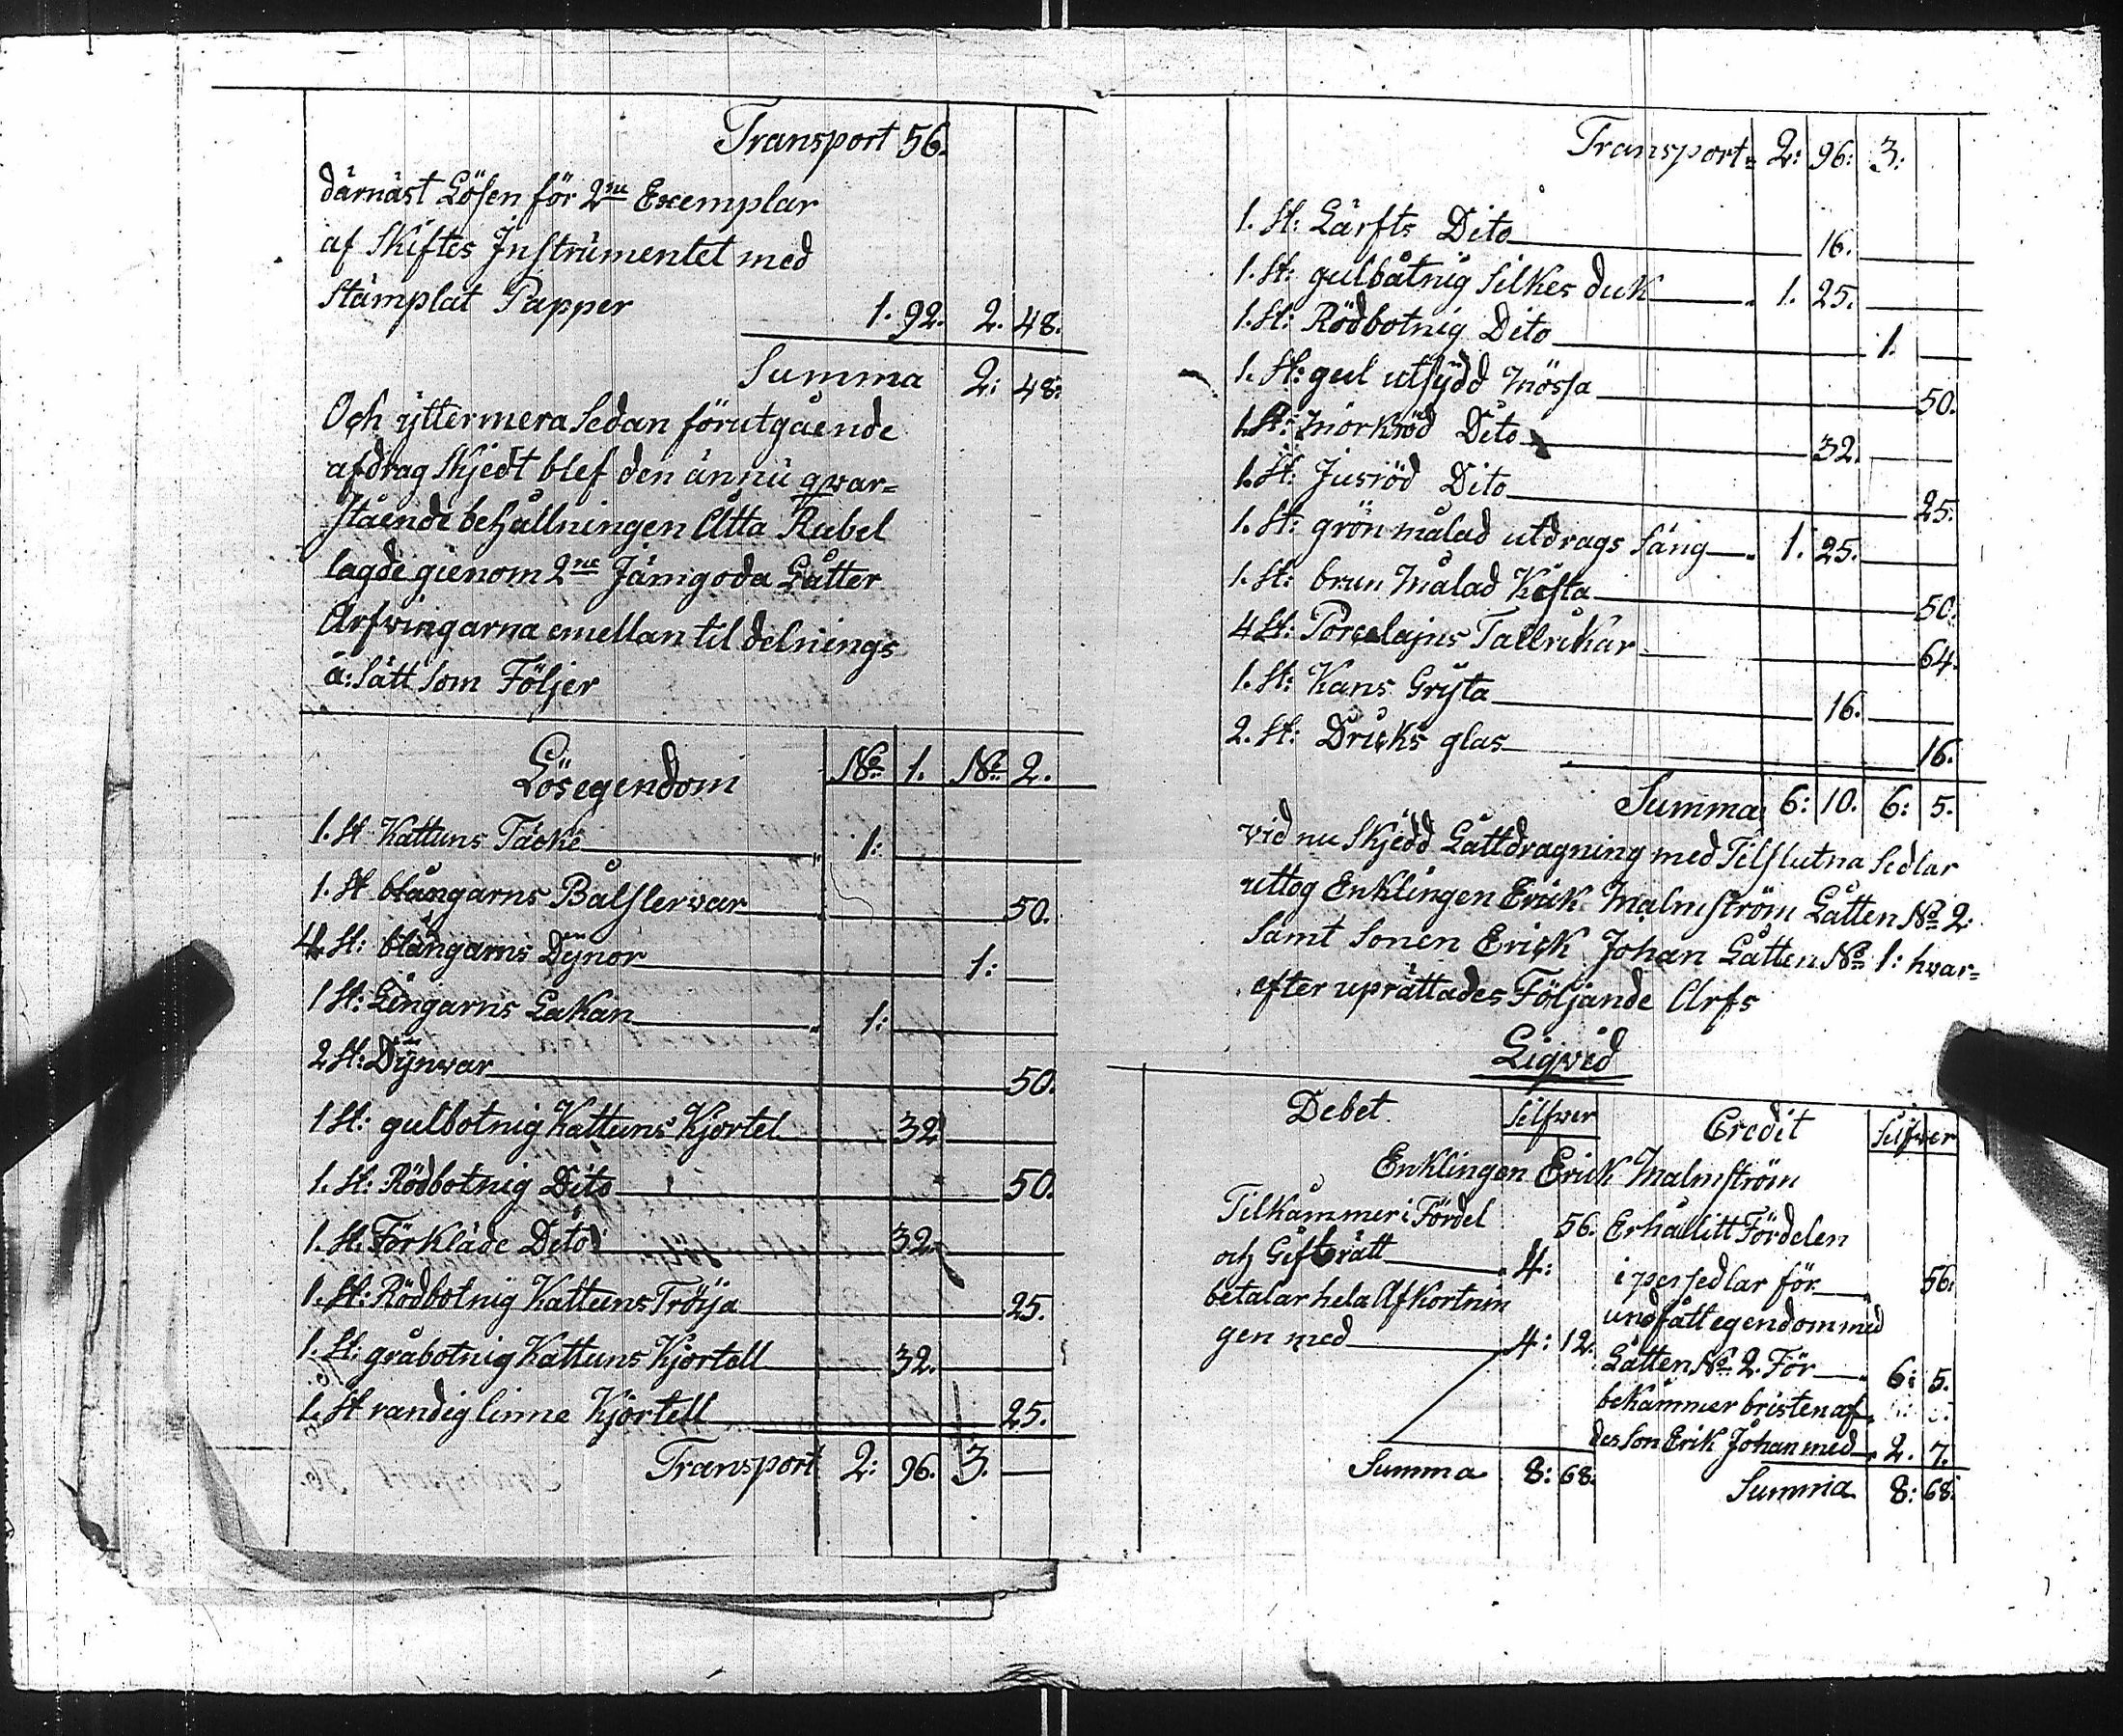 Transport 56.
därnäst Lösen för 2ne Exemplar
af Skiftes Instrumentet med
Stämplat Papper 1. 92. 2. 48.
Summa 2: 48:
Och yttermera Sedan förutgående
afdrag Skjedt blef den ännu qvar=
stående behållningen Åtta Rubel
lagde gienom 2ne Jämgoda Låtter
Arfvingarna emellan til delnings
å: Sätt Som Följer
Lösegendom No 1. No 2.
1. St Kattuns Täcke 1:
1. St blångarns Bålstervar 50.
4. St: blångarns Dynor 1:
1 St: Lingarns Lakan 1:
2 St: Dynvar 50.
1 St: gulbotnig Kattuns Kjortel 32
1. St: Rödbotnig Dito 50.
1. St. Förkläde Dito 32.
1. St: Rödbotnig Kattuns Tröija 25.
1. St: gråbotnig Kattuns Kjortell 32.
1. St randig linne Kjortell 25.
Transport 2: 96. 3.
Transport 2: 96: 3:
1. St: Lärfts Dito 16.
1. St: gulbåtnig Silkes duk 1. 25.
1. St: Rödbotnig Dito 1.
1. St: gul utsydd Mössa 50.
1. St: Mörkröd Dito 32.
1. St: Jusröd Dito 25.
1. St: grön målad utdrags Säng 1. 25.
1. St: brun Målad Kista 50.
4 St: Porcelajns Tallrikar 64.
1. St: Kans Gryta 16.
2. St: Dricks glas 16.
Summa 6: 10. 6: 5.
vid nu Skjedd Låttdragning med Tilslutna Sedlar
uttog Enklingen Erick Malmström Låtten No 2.
Samt Sonen Erick Johan Låtten No 1: hvar=
efter uprättades Följande Arfs
Liqvid
Debet. Silfwer Credit Silfwer
Enklingen Erick Malmström
Tilkåmmer i Fördel 56.
och Giftorätt 4:
betalar hela Afkortnin
gen med 4: 12.
Summa 8: 68.
Erhållitt Fördelen
i persedlar för 56.
undfått egendom med
Låtten No 2. För 6: 5.
bekåmmer bristen af
des Son Erik Johan med 2. 7.
Summa 8: 68.